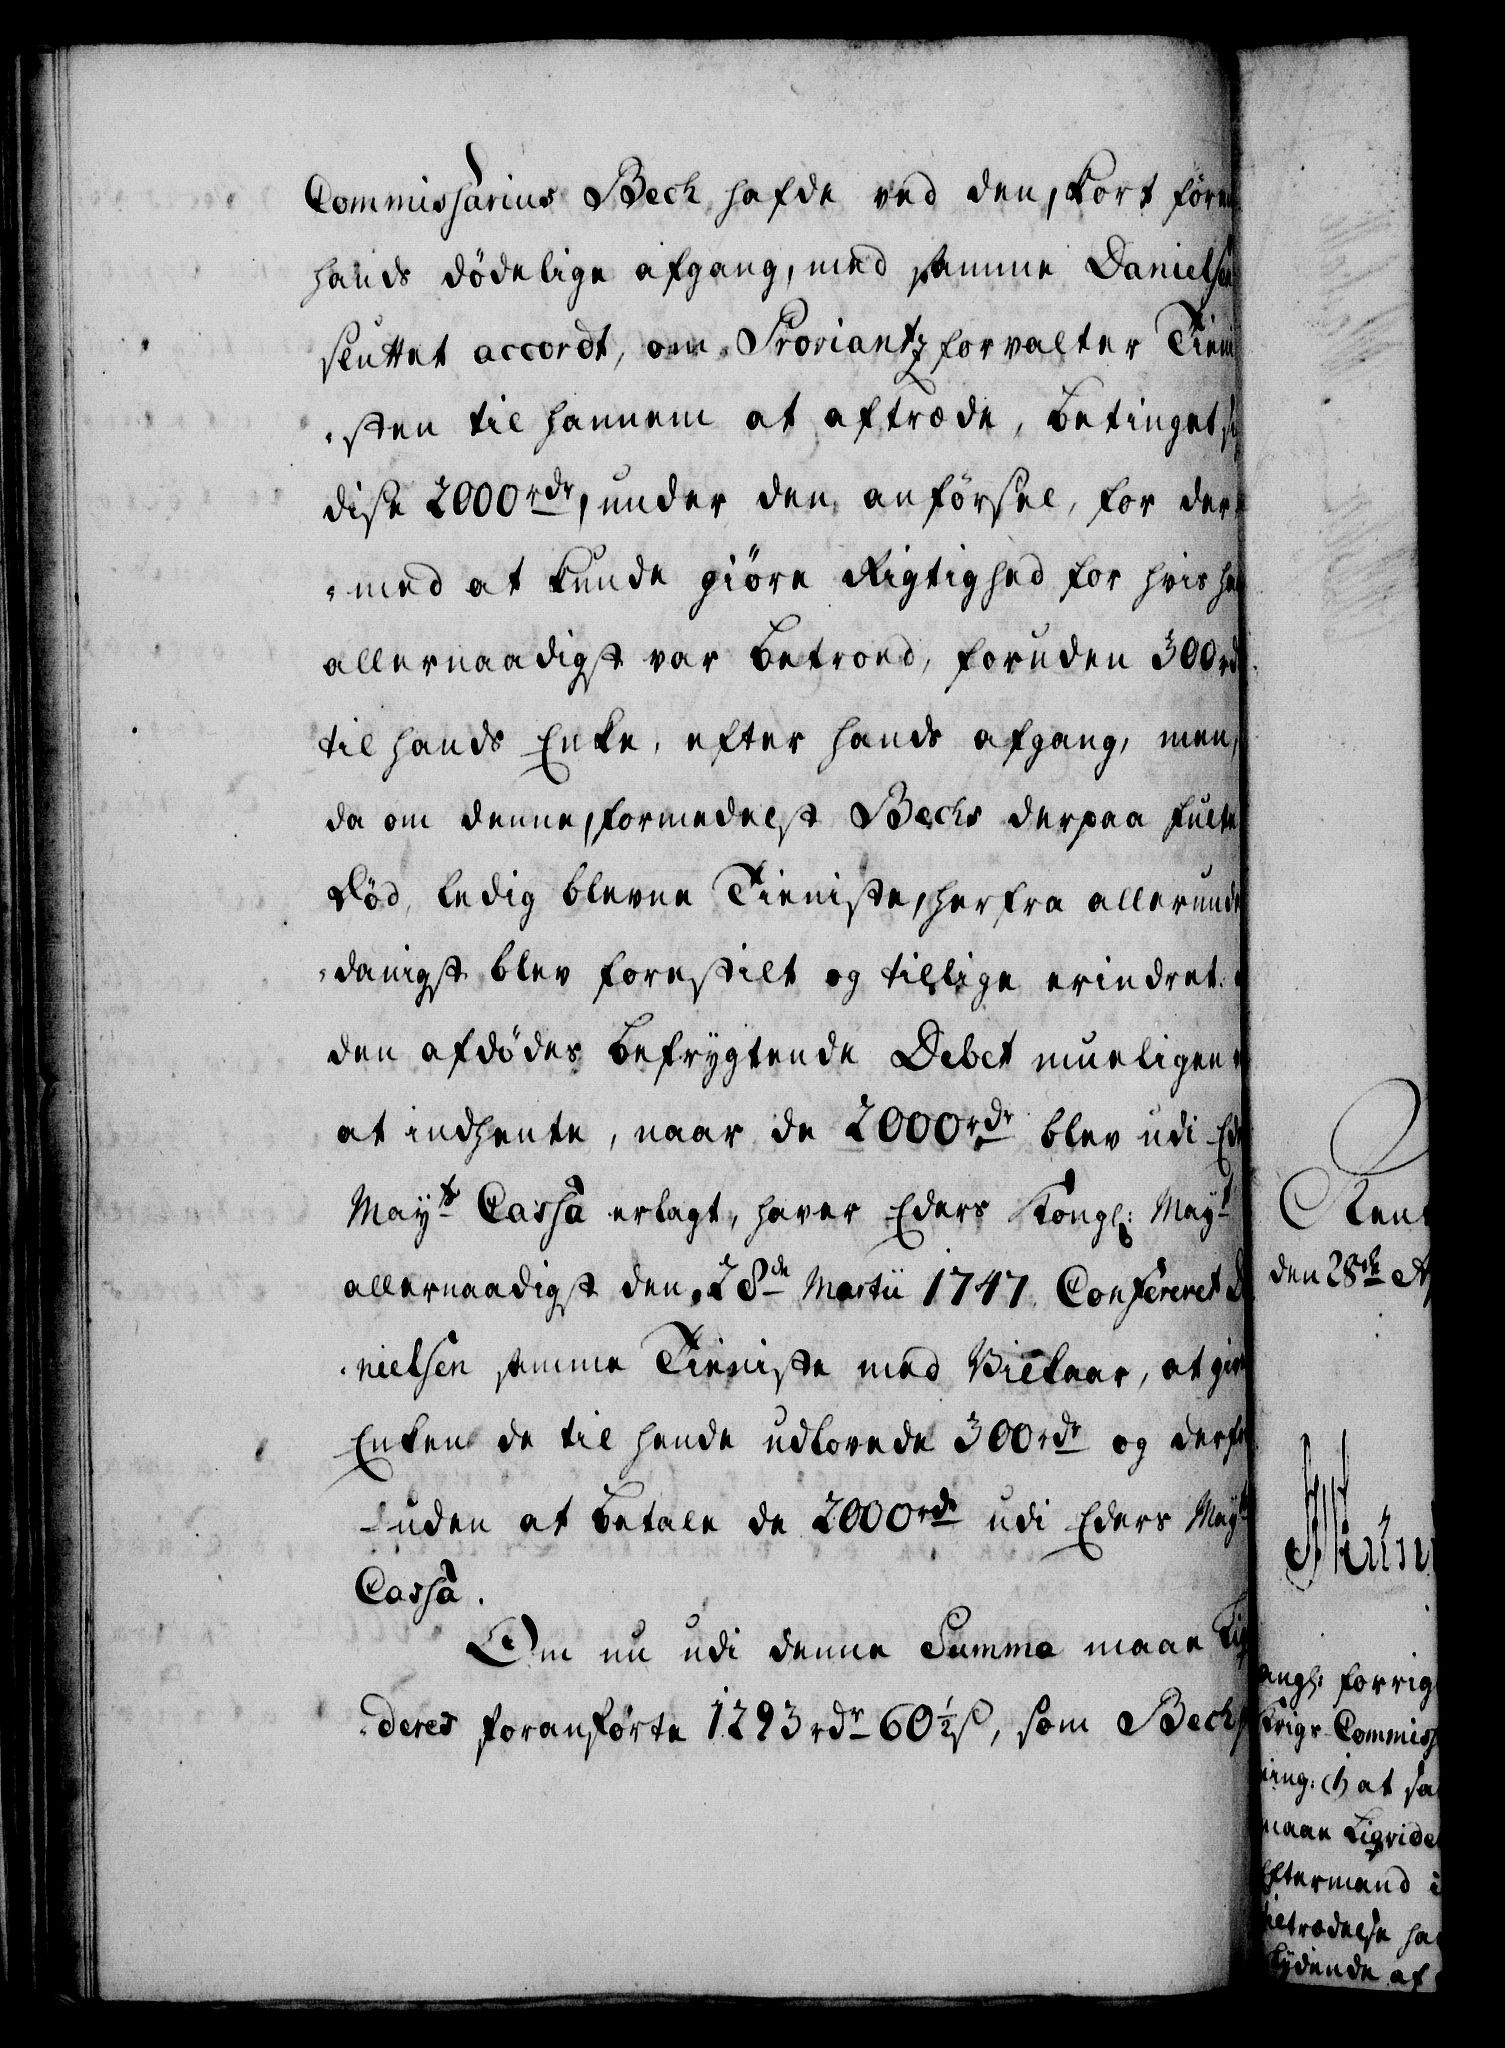 Commissarius Beck hafde ved den, kort føren
hands dödelige afgang, med samme Danielsen
sluttet accordt, om Proviantzforvalter Tieni
-sten til hannem at aftræde, betinget si
disse 2000 rdr, under den anförsel, for der
-med at kunde giöre Rigtighed for hvis ha
allernaadigst var betroed, foruden 300 rd
til hands Enke, efter hands afgang, men,
da om denne, formedelst Becks derpaa fulte
Död, ledig blevne Tieniste, herfra allerunde
-danigst blev forestilt og tillige erindret
den afdödes befrygtende Debet mueligen
at indhente, naar de 2000 rdr blev udi Ede
Mayts Cassa erlagt, haver Eders Kongl: Mayt
allernaadigst den 28de Martii 1747 Confereret D
-nielsen samme Tieniste med Vilkaar, at give
Enken de til hende udlovede 300 rdr og derfor
-uden at betale de 2000 rdr udi Eders Mayts
Cassa.
Om nu udi denne Summa maae Liq
-deres foranførte 1293 rdr 60½ ß, som Beck
Rent
den 28de Ap
angl: forrig
Krigs-Commiss
ning: (1) at sa
maae Liqvide
Eftermand i
tiltrædelse ha
lydende af